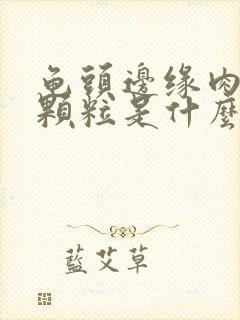 龟頭邊缘肉
顆粒是什麼
藍艾草